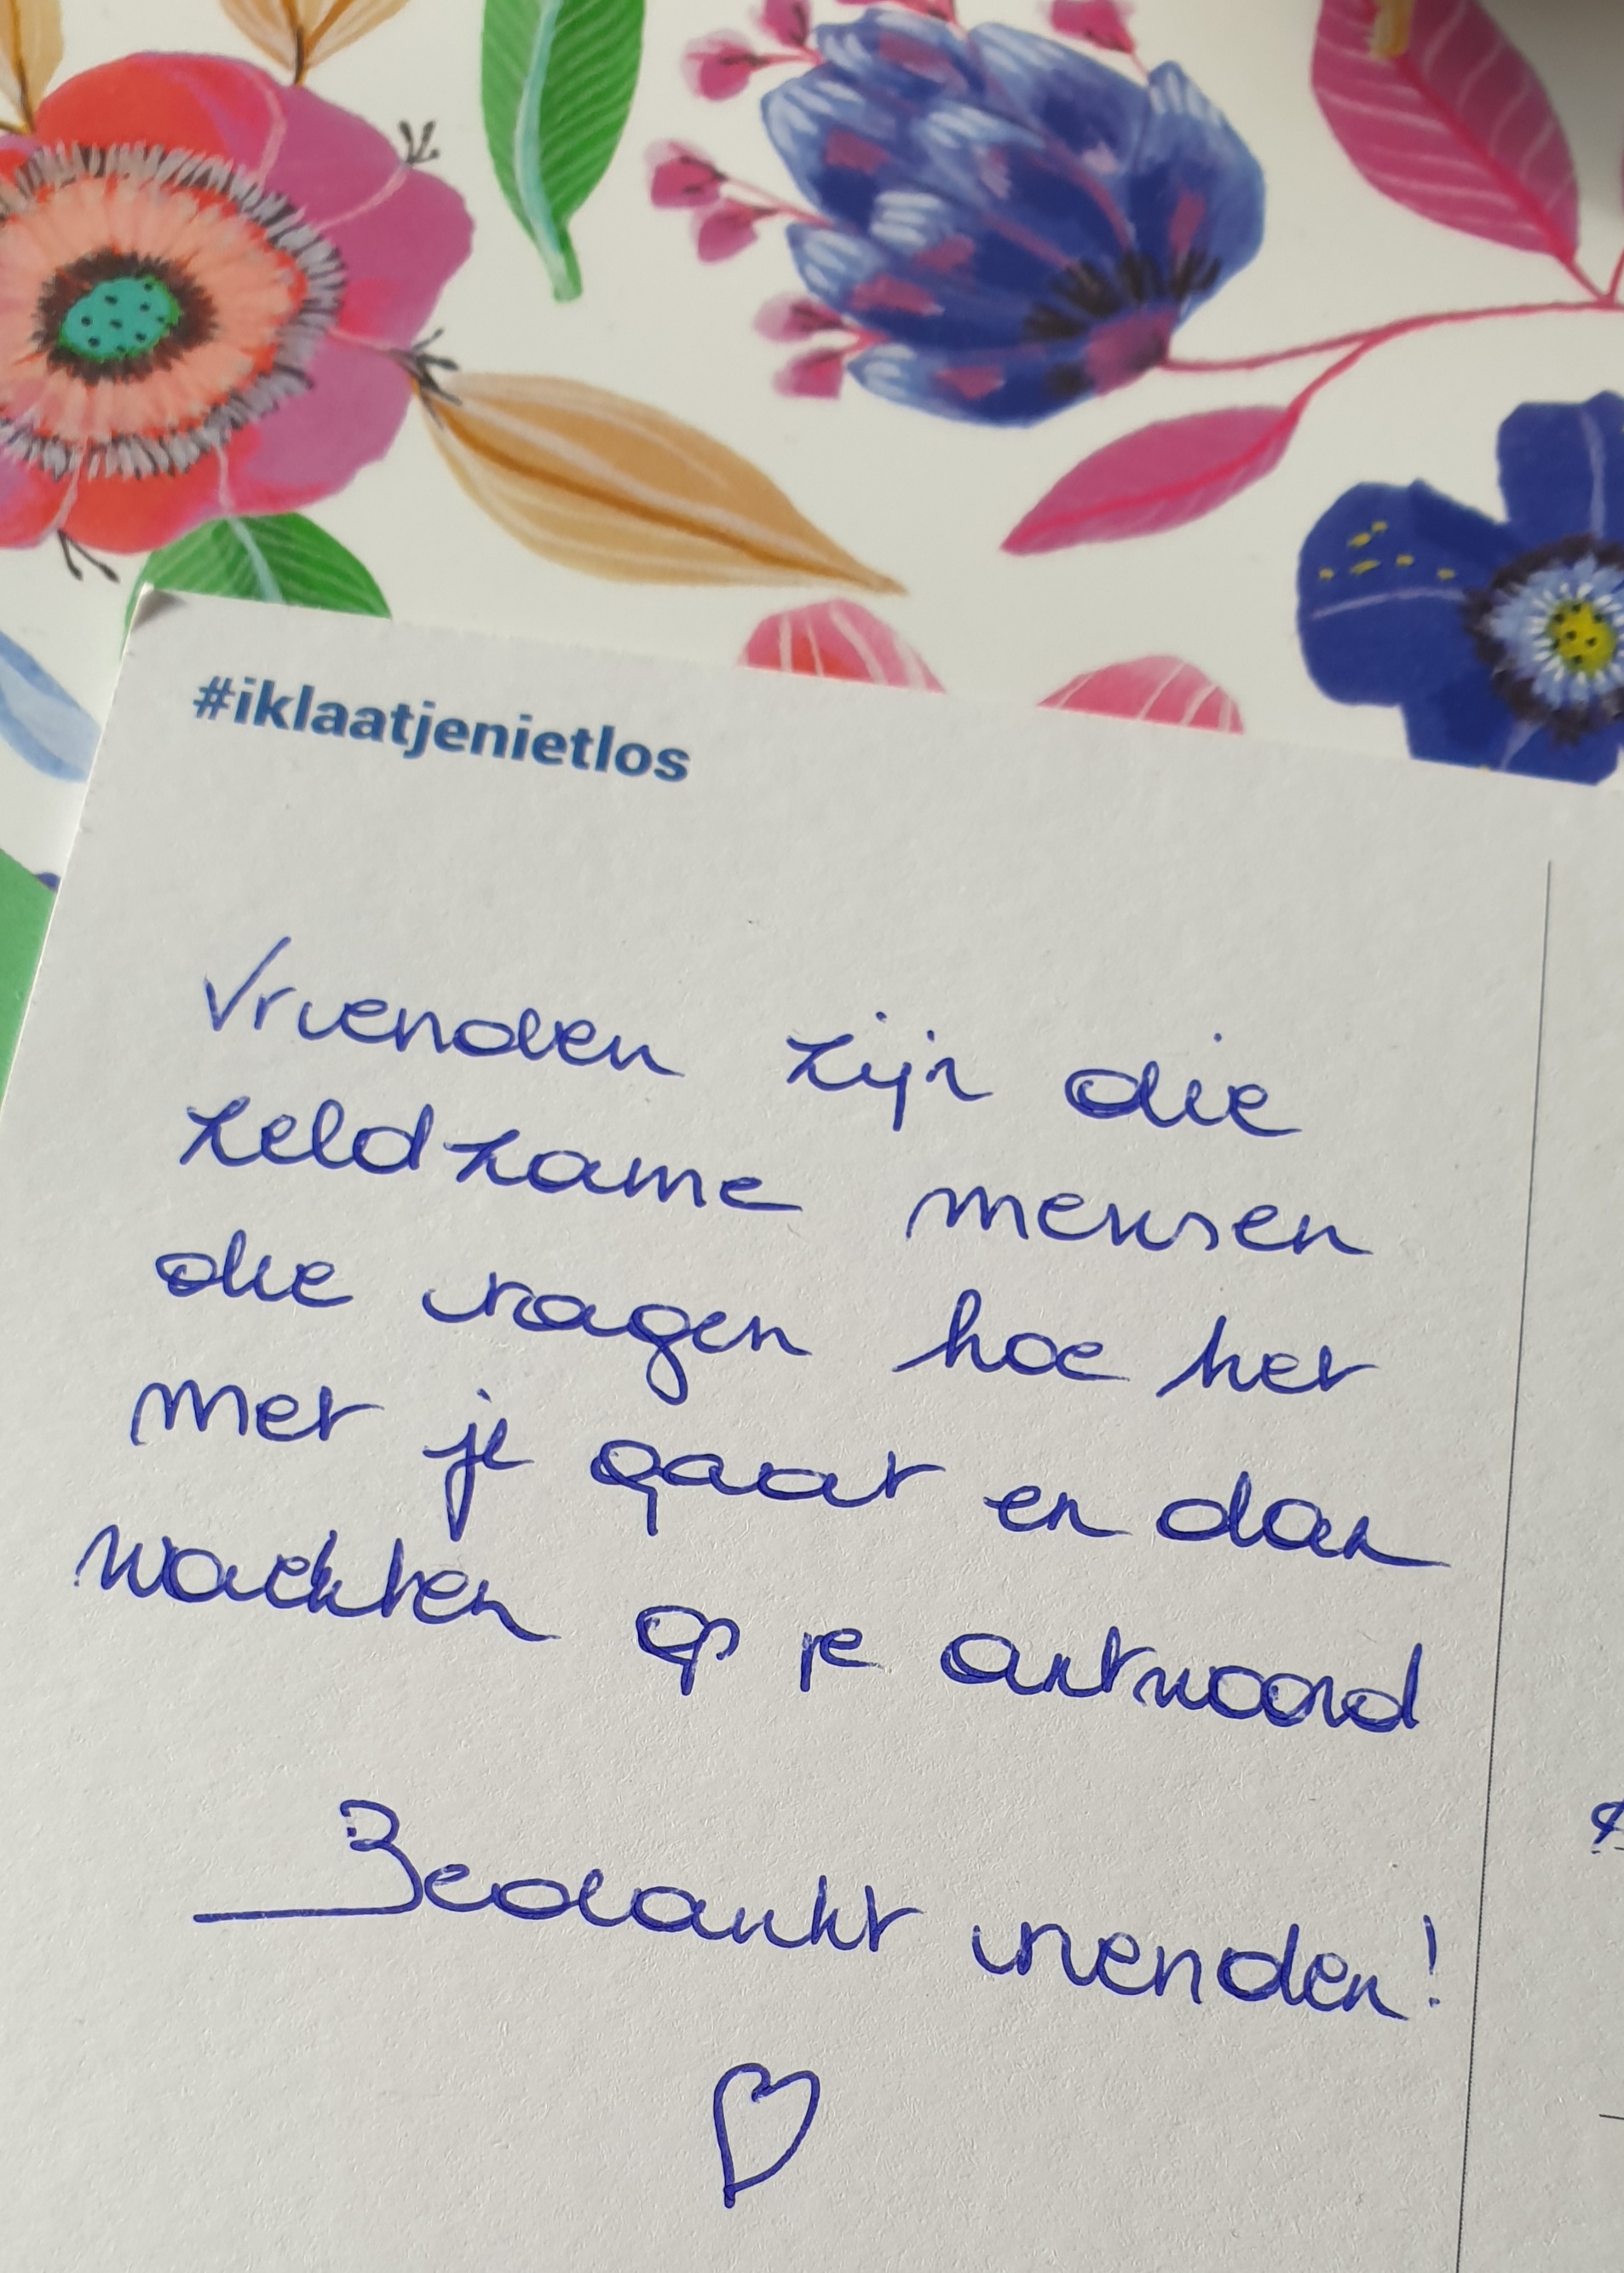 #iklaatjenietlos
Vrienden zijn die
zeldzame mensen
die vragen hoe het
met je gaat en dan
wachten op je antwoord
Bedankt vrienden!